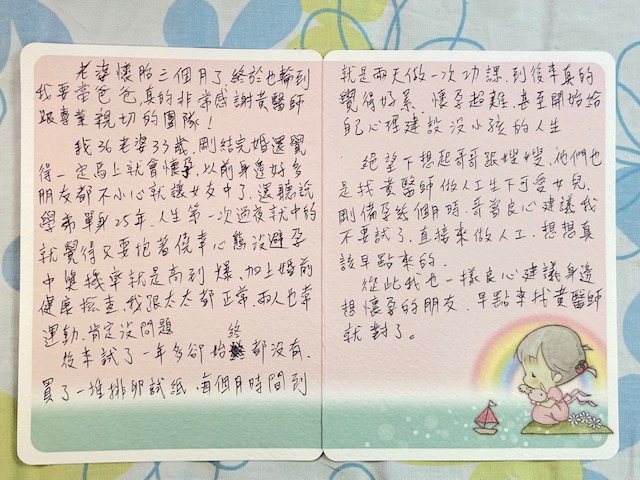 老婆懷胎三個月了 終於也輪到
我要當爸爸,真的非常感謝黃醫師
跟專業親切的團隊!
我36老婆33歲,剛結完婚還覺
得一定馬上就會懷孕,以前身邊好多
朋友都不小心就讓女友中了,還聽說
學弟單身25年,人生第一次過夜就中的
就覺得只要抱著僥幸心態沒避孕
中獎機率就是高到爆,加上婚前
健康檢查,我跟太太都正常,兩人也常
運動,肯定沒問題
後來試了一年多卻始終都沒有,
買了一堆排卵試紙,每個月時間到
就是兩天做一次功課,到後來真的
覺得好累,懷孕超難,甚至開始給
自己心理建設沒小孩的人生
絕望下想起哥哥跟嫂嫂,他們也
是找黃醫師做人工生下可愛女兒,
剛備孕幾個月時,哥曾良心建議我
不要試了,直接來做人工,想想真
該早點來的.
從此我也一樣良心建議身邊
想懷孕的朋友,早點來找黃醫師
就對了。